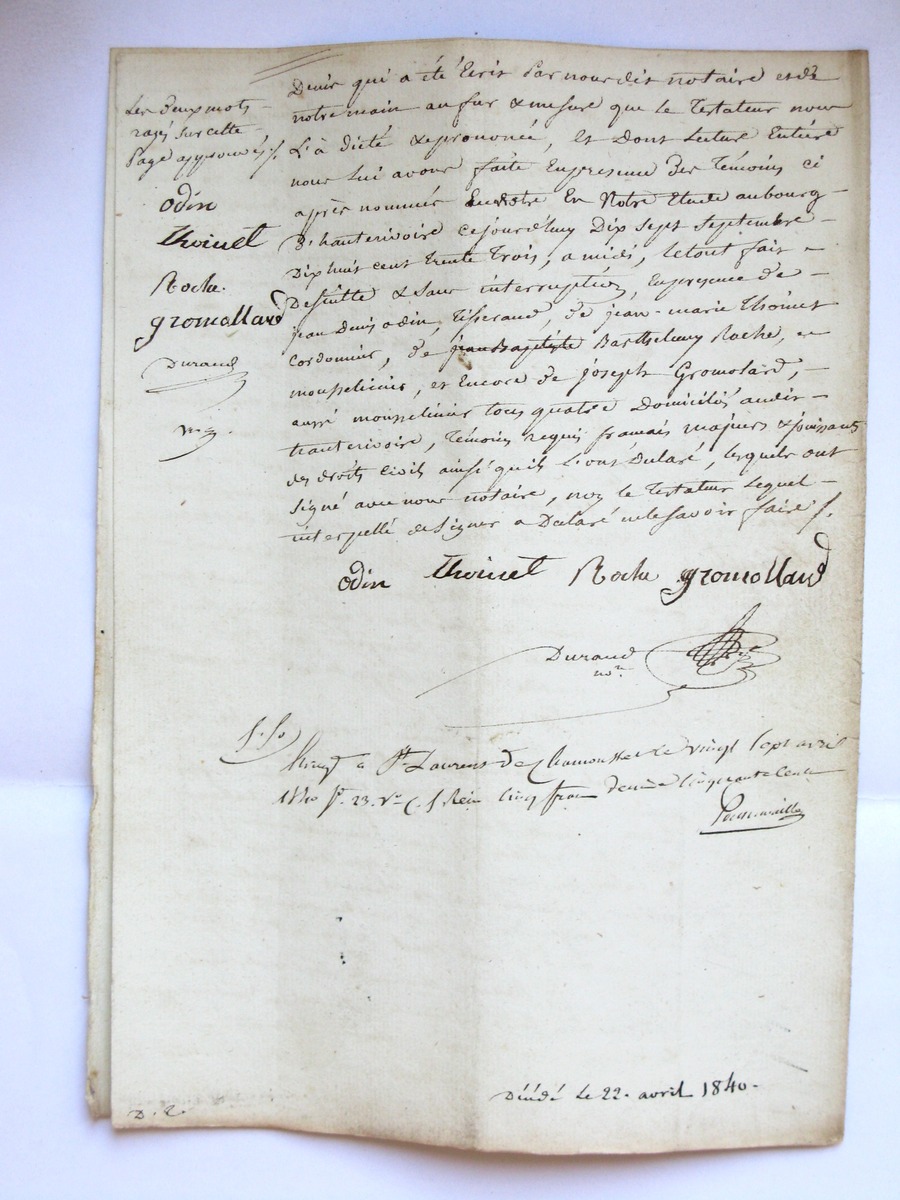 Les deux mots
razés sur cette
Page approuvés
odin
thoinet
Roche.
gromollard
Durand
nre.
Denis qui a été Ecrit Par nous dit notaire et de
notre main au fur & mesure que le Testateur nous
L'a dicté & prononcé, Et Dont Lecture Entière
nous Lui avons faite En presence Des Témoins ci
après nommés En Notre Etude au bourg
D'hauterivoire cejourd'huy Dix Sept Septembre
Dix huit cent trente Trois, a midi, le tout fait
De suitte & sans interruption, En presence de
jean Denis odin, Tisserand, de jean-marie Thoinet
Cordonnier, de jean Baptiste Barthelemy Roche,
mousselinier, et Encore de joseph Gromolard,
aussi mousselinier tous quatre Domiciliés audit
hauterivoire, Témoins requis français majeurs & jouissant
des droits civils ainsi qu'ils L'ont Déclaré, lesquels ont
Signé avec nous notaire, non le Testateur Lequel
interpellé de Signer a Déclaré ne le Savoir faire ƒ.
odin thoinet Roche gromollard
Durand
nore
à St Laurent de Chamousset le vingt sept avril
1840 fo. 23. vo C. 1 Reçu Cinq francs decime Cinquante Cent
Décédé Le 22. avril 1840.
D. 2.